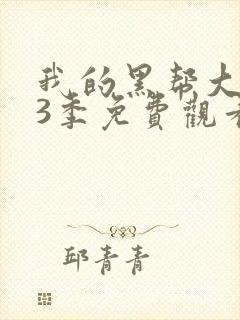 我的黑帮大
3季免費觀看
邱青青